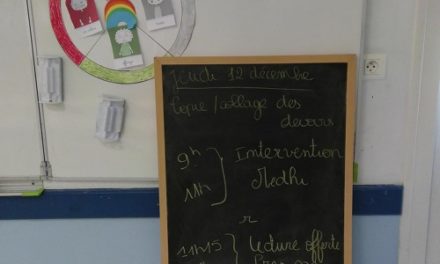 Jeudi 12 décembre
Copie / collage des
devoirs
9h } Intervention
11h } Medhi
r
11h15 } Lecture offerte